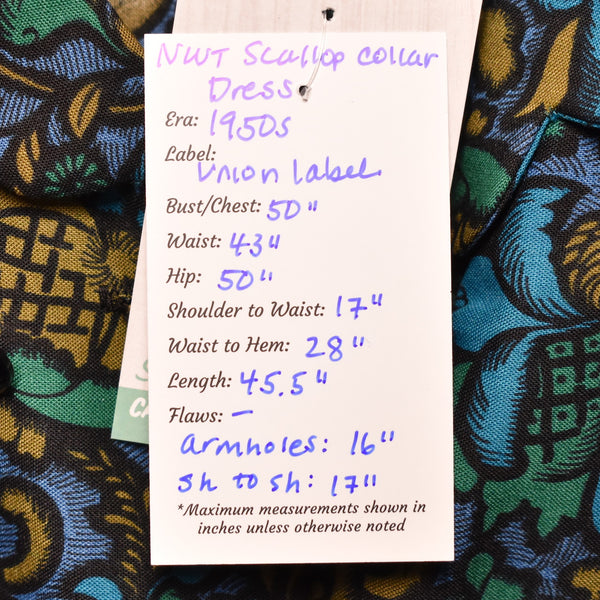 NWT Scallop collar
Dress
Era: 1950s
Label:
Union label
Bust/Chest: 50"
Waist: 43"
Hip: 50"
Shoulder to Waist: 17"
Waist to Hem: 28"
Length: 45.5"
Flaws: —
armholes: 16"
sh to sh: 17"
*Maximum measurements shown in
inches unless otherwise noted